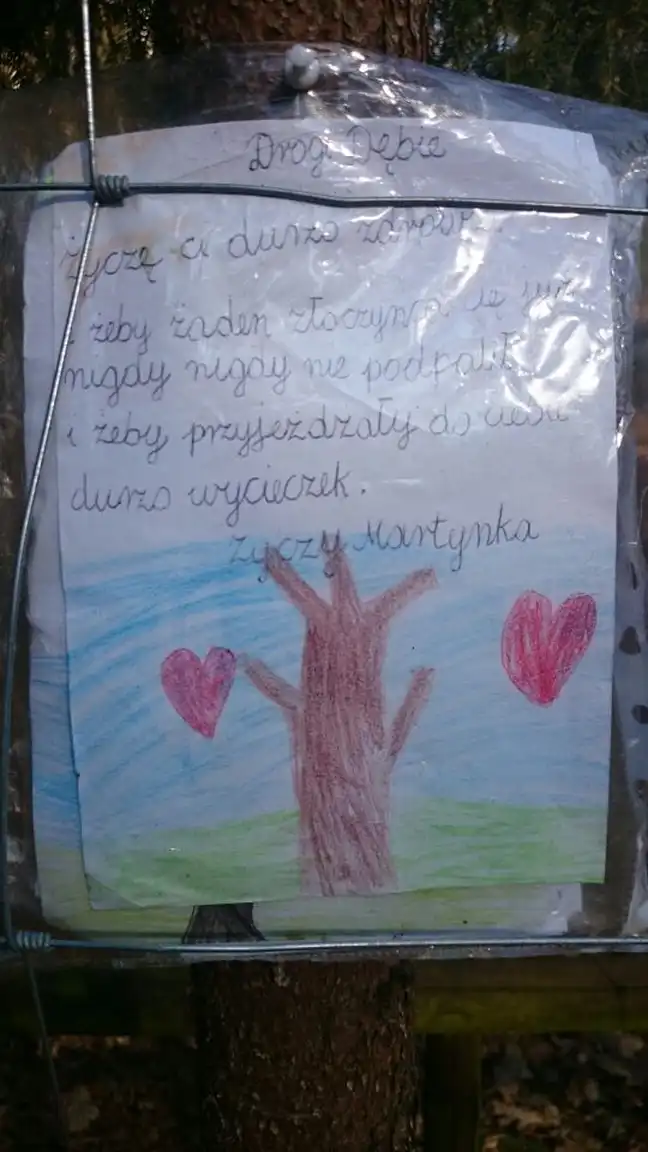 Drogi Dębie
Życzę ci durzo zdrow
i żeby żaden złoczyńca cię już
nigdy nigdy nie podpalił
i żeby przyjeżdzały do ciebie
durzo wycieczek.
życzy Martynka